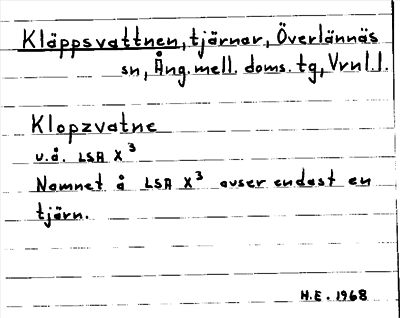 Kläppsvattnen, tjärnar, Överlännäs
sn, Ång. mell. doms. tg, Vrnl.l.
Klopzvatne
u.å. LSA X³
Namnet å LSA X³ avser endast en
tjärn.
H.E. 1968